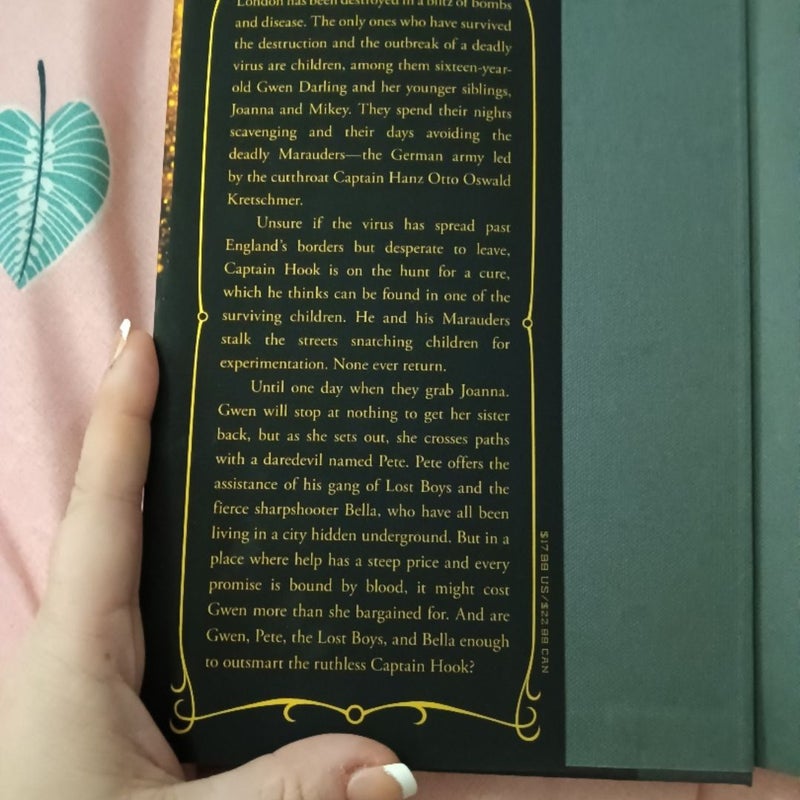 London has been destroyed in a blitz of bombs
and disease. The only ones who have survived
the destruction and the outbreak of a deadly
virus are children, among them sixteen-year-
old Gwen Darling and her younger siblings,
Joanna and Mikey. They spend their nights
scavenging and their days avoiding the
deadly Marauders—the German army led
by the cutthroat Captain Hanz Otto Oswald
Kretschmer.
Unsure if the virus has spread past
England's borders but desperate to leave,
Captain Hook is on the hunt for a cure,
which he thinks can be found in one of the
surviving children. He and his Marauders
stalk the streets snatching children for
experimentation. None ever return.
Until one day when they grab Joanna.
Gwen will stop at nothing to get her sister
back, but as she sets out, she crosses paths
with a daredevil named Pete. Pete offers the
assistance of his gang of Lost Boys and the
fierce sharpshooter Bella, who have all been
living in a city hidden underground. But in a
place where help has a steep price and every
promise is bound by blood, it might cost
Gwen more than she bargained for. And are
Gwen, Pete, the Lost Boys, and Bella enough
to outsmart the ruthless Captain Hook?
$17.99 US/$22.99 CAN